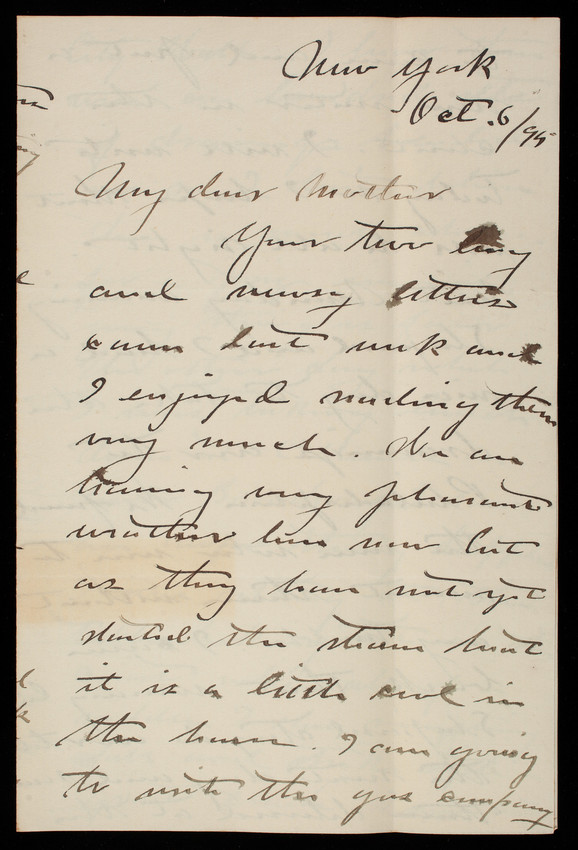 New York
Oct. 6/95
My dear Mother
Your two long
and newsy letters
came last week and
I enjoyed reading them
very much. We are
having very pleasant
weather here now but
as they have not yet
started the steam heat
it is a little cool in
the house. I am going
to write the gas company